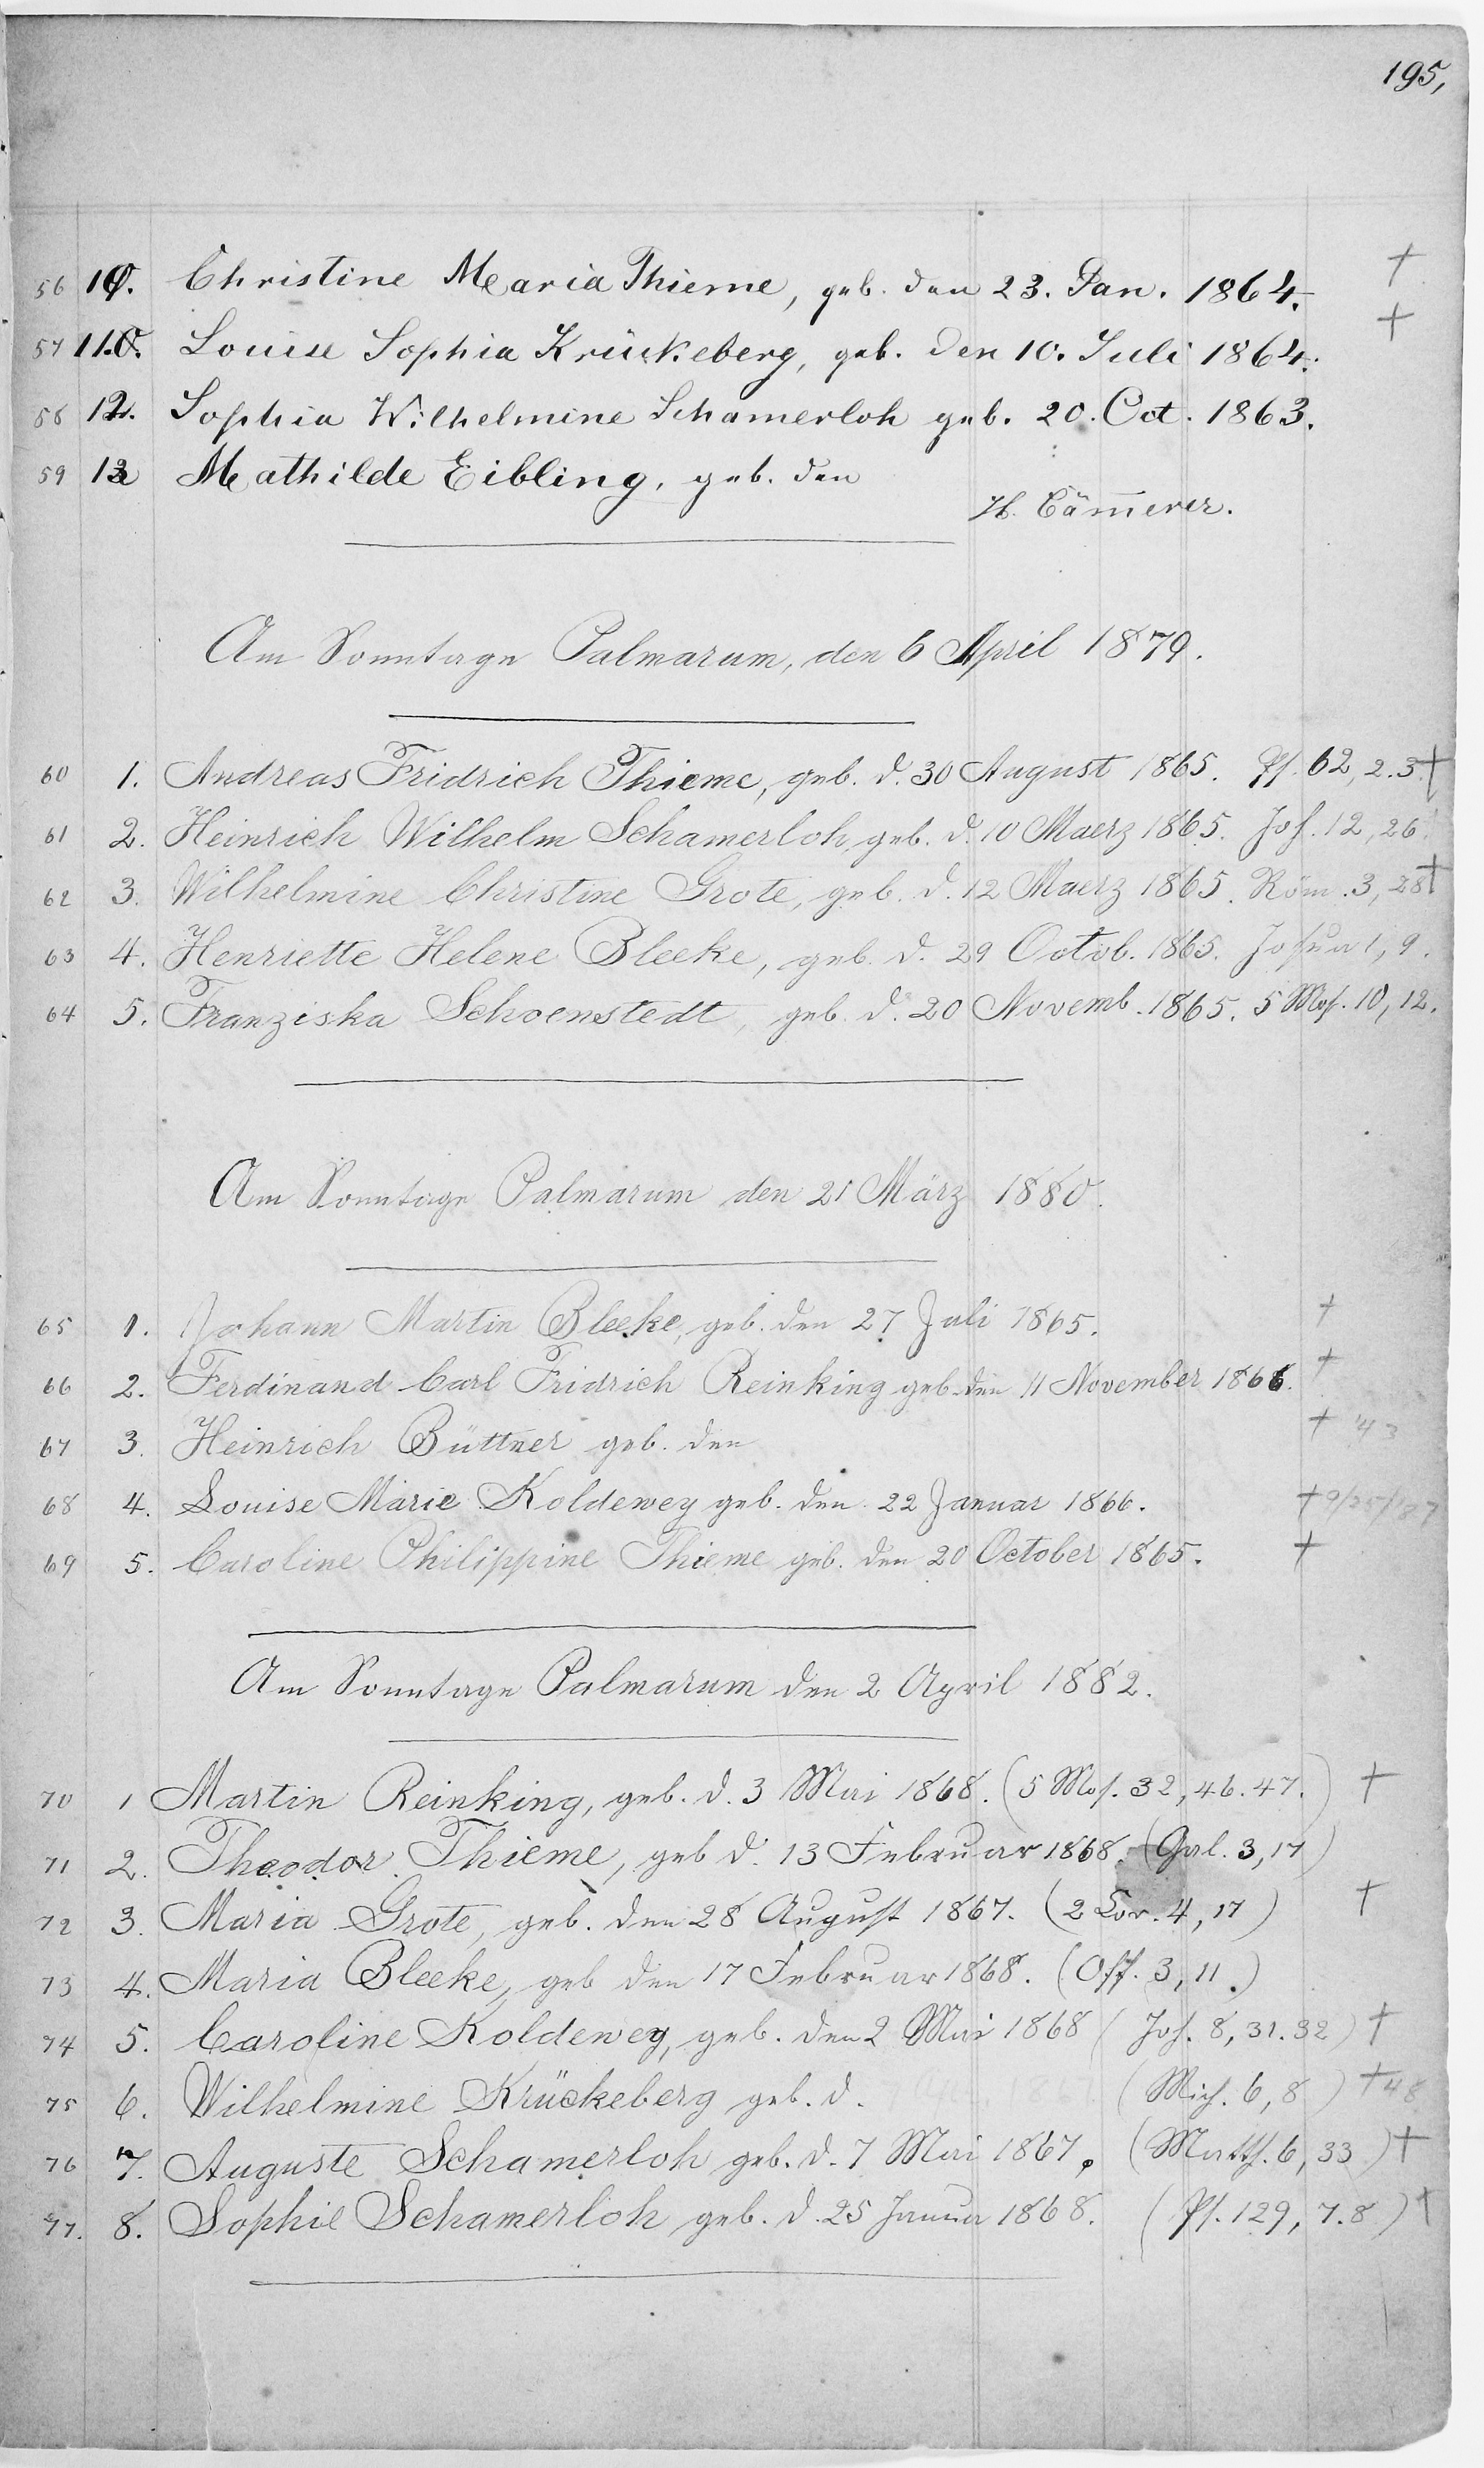 195,
56 10. Christine Maria Thieme, geb. den 23. Jan. 1864. †
57 11. Louise Sophia Krückeberg, geb. den 10. Juli 1864. †
58 12. Sophia Wilhelmine Schamerloh geb. 20. Oct. 1863.
59 13 Mathilde Eibling, geb. den
H. Cäm̅erer.
Am Sonntage Palmarum, den 6 April 1879.
60 1. Andreas Fridrich Thieme, geb. d. 30 August 1865. Ps. 62, 2.3. †
61 2. Heinrich Wilhelm Schamerloh, geb. d. 10 Maerz 1865. Joh. 12, 26.
62 3. Wilhelmine Christine Grote, geb. d. 12 Maerz 1865. Röm. 3, 28 †
63 4. Henriette Helene Bleeke, geb. d. 29 Octob. 1865. Josua 1, 9.
64 5. Franziska Schoenstedt, geb. d. 20 Novemb. 1865. 5 Mos. 10, 12.
Am Sonntage Palmarum den 21 März 1880.
65 1. Johann Martin Bleeke, geb. den 27 Juli 1865. †
66 2. Ferdinand Carl Fridrich Reinking geb. den 11 November 1866. †
67 3. Heinrich Büttner geb. den † '43
68 4. Louise Marie Koldewey geb. den 22 Januar 1866. †
69 5. Caroline Philippine Thieme geb. den 20 October 1865. †
Am Sonntage Palmarum den 2 April 1882.
70 1 Martin Reinking, geb. d. 3 Mai 1868. (5 Mos. 32, 46. 47.) †
71 2. Theodor Thieme, geb d. 13 Februar 1868. (Gal. 3, 17)
72 3. Maria Grote, geb. den 28 August 1867. (2 Cor. 4, 17) †
73 4. Maria Bleeke, geb den 17 Februar 1868. (Off. 3, 11.)
74 5. Caroline Koldewey, geb. den 2 Mai 1868 (Joh. 8, 31. 32) †
75 6. Wilhelmine Krückeberg geb. d. (Mich. 6, 8) † 48
76 7. Auguste Schamerloh geb. d. 7 Mai 1867. (Matth. 6, 33) †
77. 8. Sophie Schamerloh geb. d. 25 Janua 1868. (Ps. 129, 7. 8) †